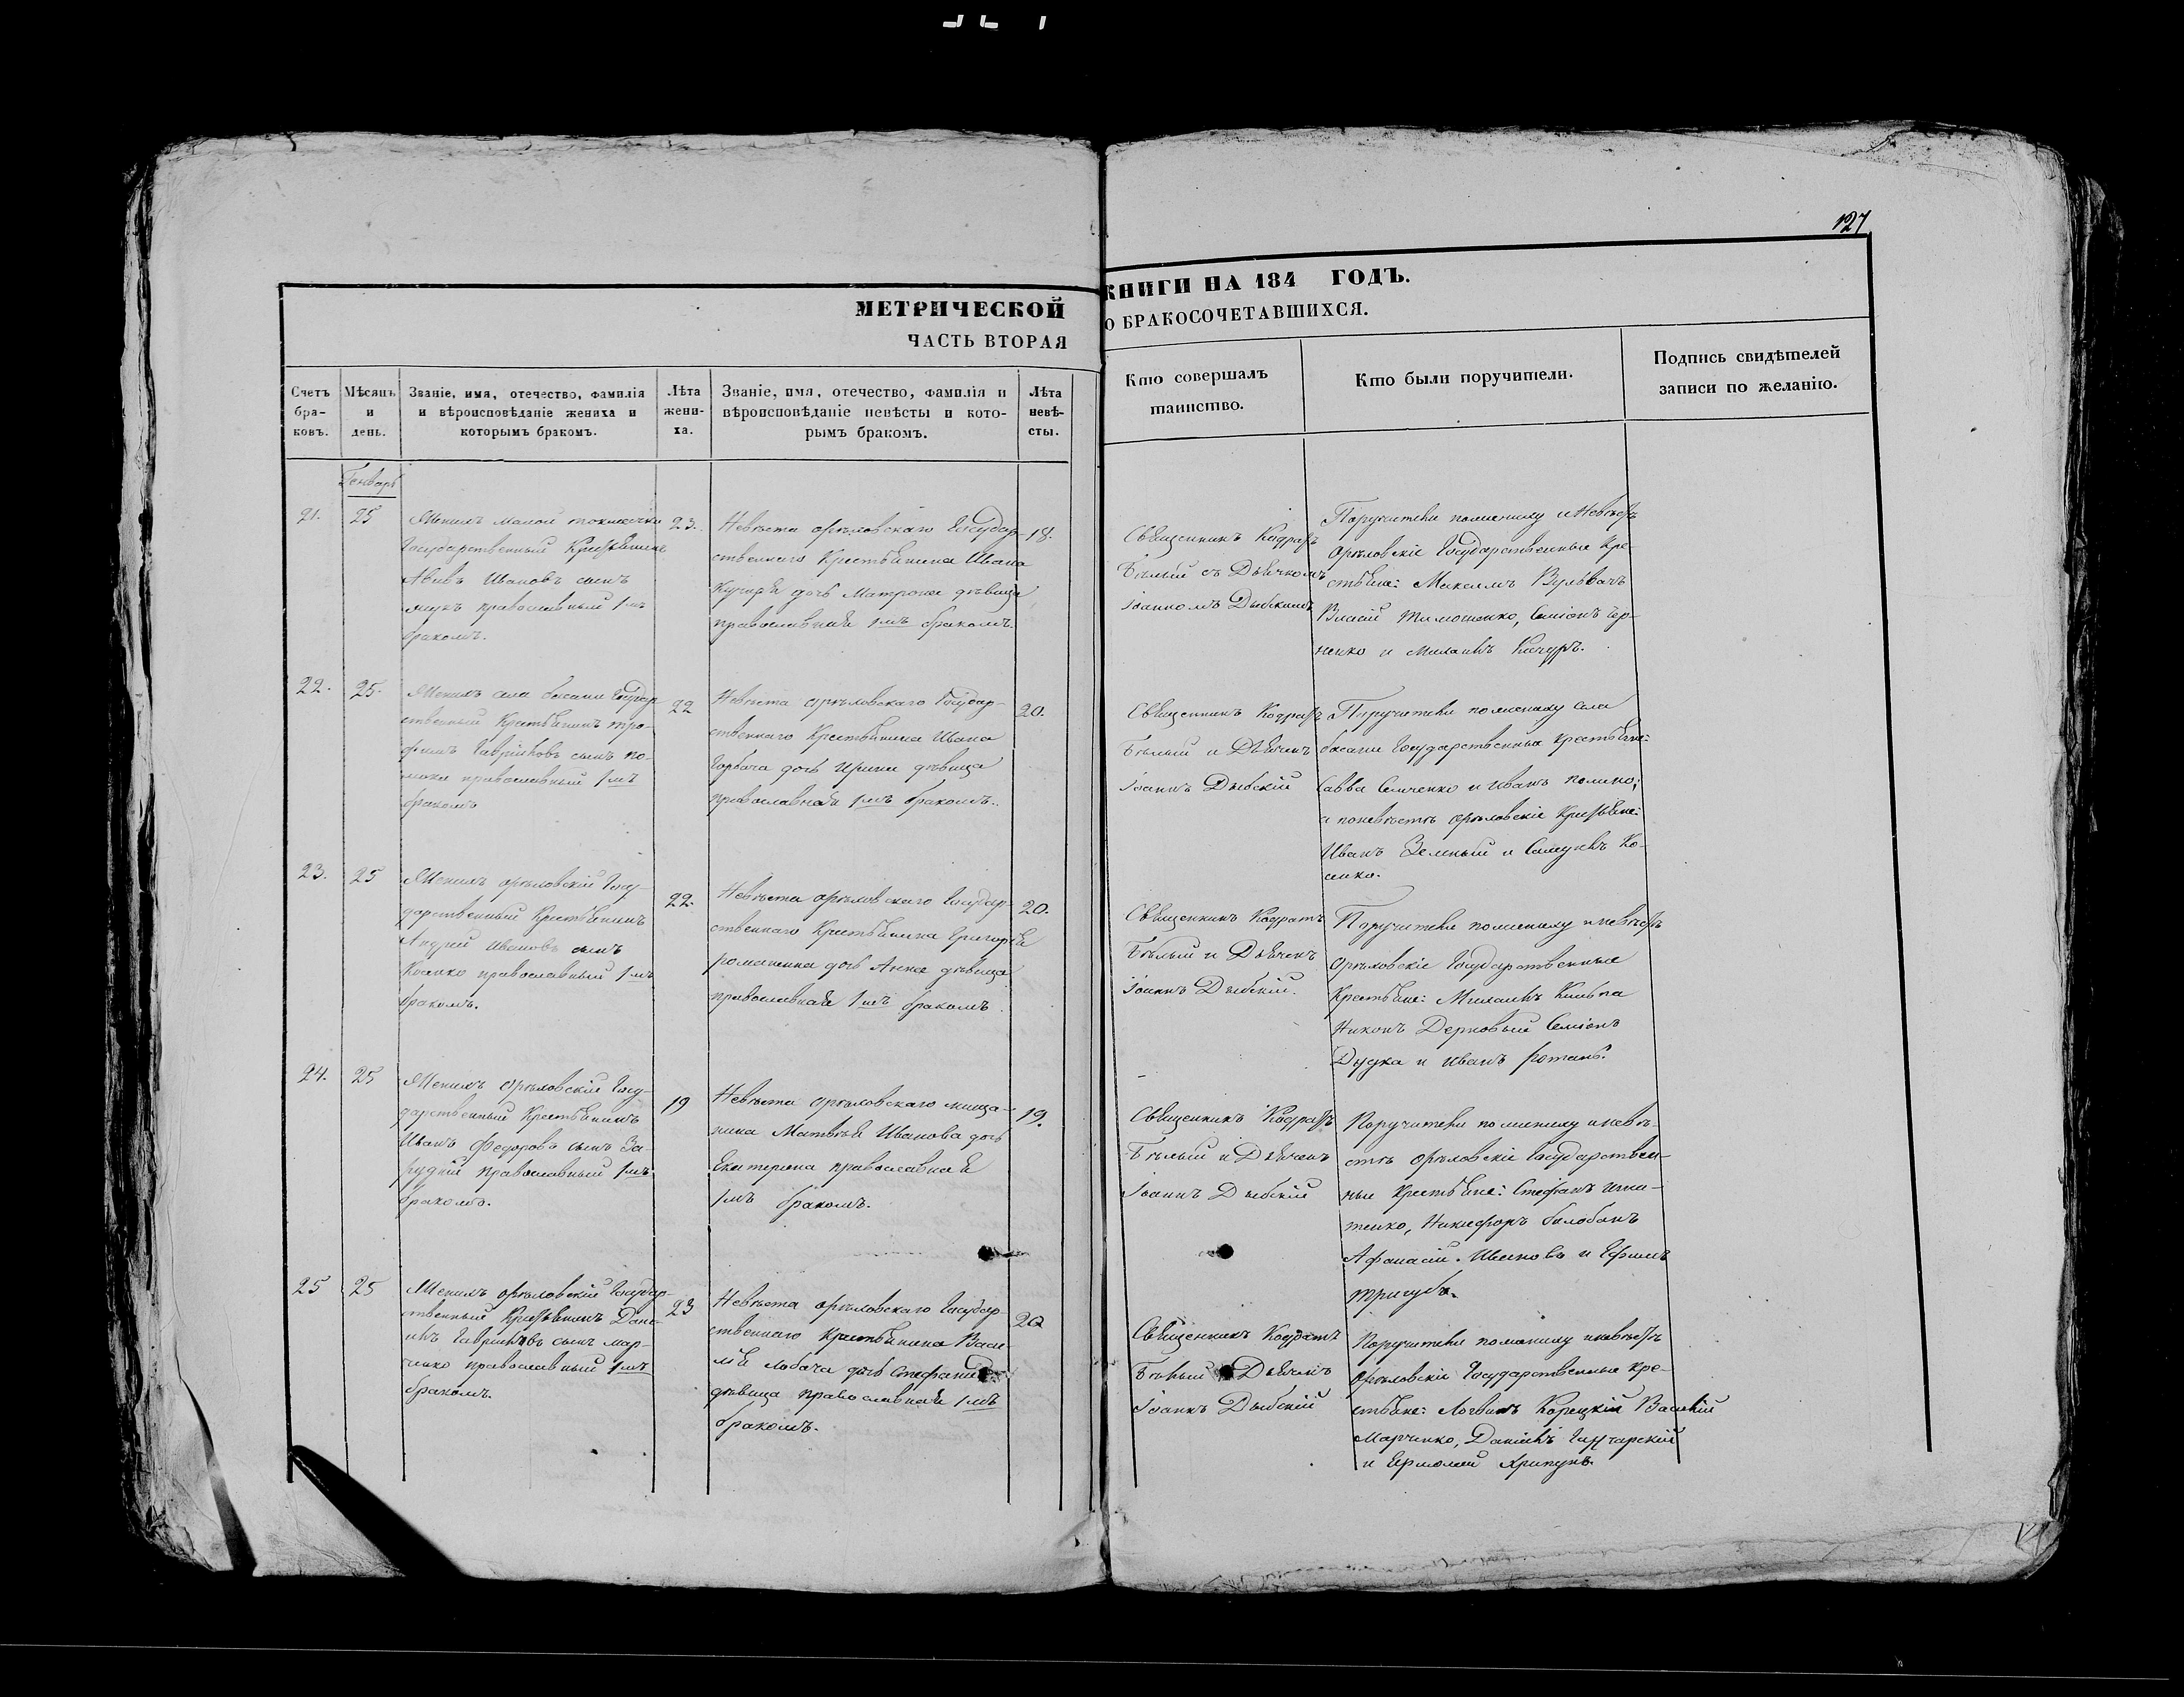 127
МЕТРИЧЕСКОЙ КНИГИ НА 184 ГОДЪ.
ЧАСТЬ ВТОРАЯ О БРАКОСОЧЕТАВШИХСЯ.
Счетъ бра-ковъ.
Мѣсяцъ и день.
Званіе, имя, отечество, фамилія и вѣроисповѣданіе жениха и которымъ бракомъ.
Лѣта жени-ха.
Званіе, имя, отечество, фамилія и вѣроисповѣданіе невѣсты и кото-рымъ бракомъ.
Лѣта невѣ-сты.
Кто совершалъ таинство.
Кто были поручители.
Подпись свидѣтелей записи по желанію.
Генварь
21.
25
Женихъ малой
Государственный Крестьянинъ
Ивановъ сынъ
православный 1мъ
бракомъ.
23.
Невѣста орѣловскаго Государ-
ственнаго Крестьянина Ивана
дочь Матрона дѣвица
православная 1мъ бракомъ.
18.
Священникъ Кодратъ
Бѣлый съ Дьячкомъ
Іоанномъ
Поручители по жениху и Невѣстѣ
Орѣловскіе Государственные Кре-
стьяне: Максимъ
Власій Тимошенко, Семіонъ Чер-
ненко и Михаилъ Качуръ.
22.
25.
Женихъ села басани Государ
ственный Крестьянинъ Тро-
фимъ Гавріиловъ сынъ По-
православный 1мъ
бракомъ
22
Невѣста орѣловскаго Государ-
ственнаго Крестьянина Ивана
Горбача дочь Ирина дѣвица
православная 1мъ бракомъ.
20.
Священникъ Кодратъ
Бѣлый и Дьячекъ
Іоаннъ
Поручители по жениху села
басани Государственныя Крестьяне:
Савва Семченко и Иванъ
а по невѣстѣ орѣловскіе Крестьяне:
Иванъ и Самуилъ Ко-
сенко.
23.
25
Женихъ орѣловскій Госу-
дарственный Крестьянинъ
Андрей Ивановъ сынъ
православный 1мъ
бракомъ.
22.
Невѣста орѣловскаго Государ-
ственнаго Крестьянина Григорія
романенка дочь Анна дѣвица
православная 1мъ бракомъ
20.
Священникъ Кодратъ
Бѣлый и Дьячекъ
Іоаннъ
Поручители по жениху и невѣстѣ
Орѣловскіе Государственные
Крестьяне: Михаилъ
Никонъ Дерковый Семіонъ
Дудка и Иванъ
24.
25
Женихъ орѣловскій Госу-
дарственный Крестьянинъ
Иванъ Федоровъ сынъ За-
рудній православный 1мъ
бракомъ.
19
Невѣста орѣловскаго мища-
нина Матвѣя Иванова дочь
Екатерина православная
1мъ бракомъ.
19.
Священникъ Кодратъ
Бѣлый и Дьячекъ
Іоаннъ
Поручители по жениху и невѣ-
стѣ орѣловскіе Государствен-
ные Крестьяне: Стефанъ Игна-
тенко, Никифоръ балобанъ
Афанасій и Ефимъ
тригубъ.
25
25
Женихъ орѣловскій Государ-
ственный Крестьянинъ Дани-
илъ Гавріиловъ сынъ мар-
ченко православный 1мъ
бракомъ.
23
Невѣста орѣловскаго Государ-
ственнаго Крестьянина Васи-
лія лобача дочь
дѣвица православная 1мъ
бракомъ.
20
Священникъ Кодратъ
Бѣлый и Дьячекъ
Іоаннъ
Поручители по жениху и невѣстѣ
Орѣловскіе Государственные Кре-
стьяне: Логвинъ Корецкій Василій
Марченко, Даніилъ Гончарскій
и Ермолай Хрипунъ.